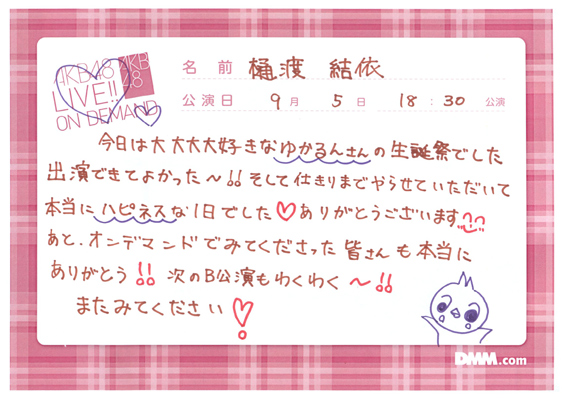 AKB48
LIVE!!
ON DEMAND
AKB
48
名前 樋渡 結依
公演日 9月 5日 18:30 公演
今日は大大大大好きなゆかるんさんの生誕祭でした
出演できてよかった〜!! そして仕きりまでやらせていただいて
本当にハピネスな1日でした♡ありがとうございます
あと、オンデマンドでみてくださった皆さんも本当に
ありがとう!! 次のB公演もわくわく〜!!
またみてください♡
DMM.com